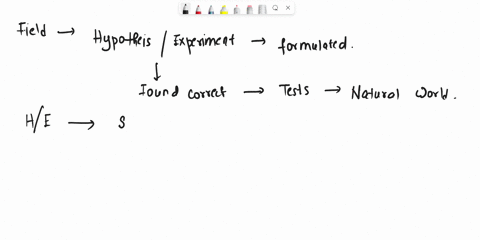 Field → Hypotheis / Experiment → formulated.
↓
found correct → Tests → Natural world.
H/E → S